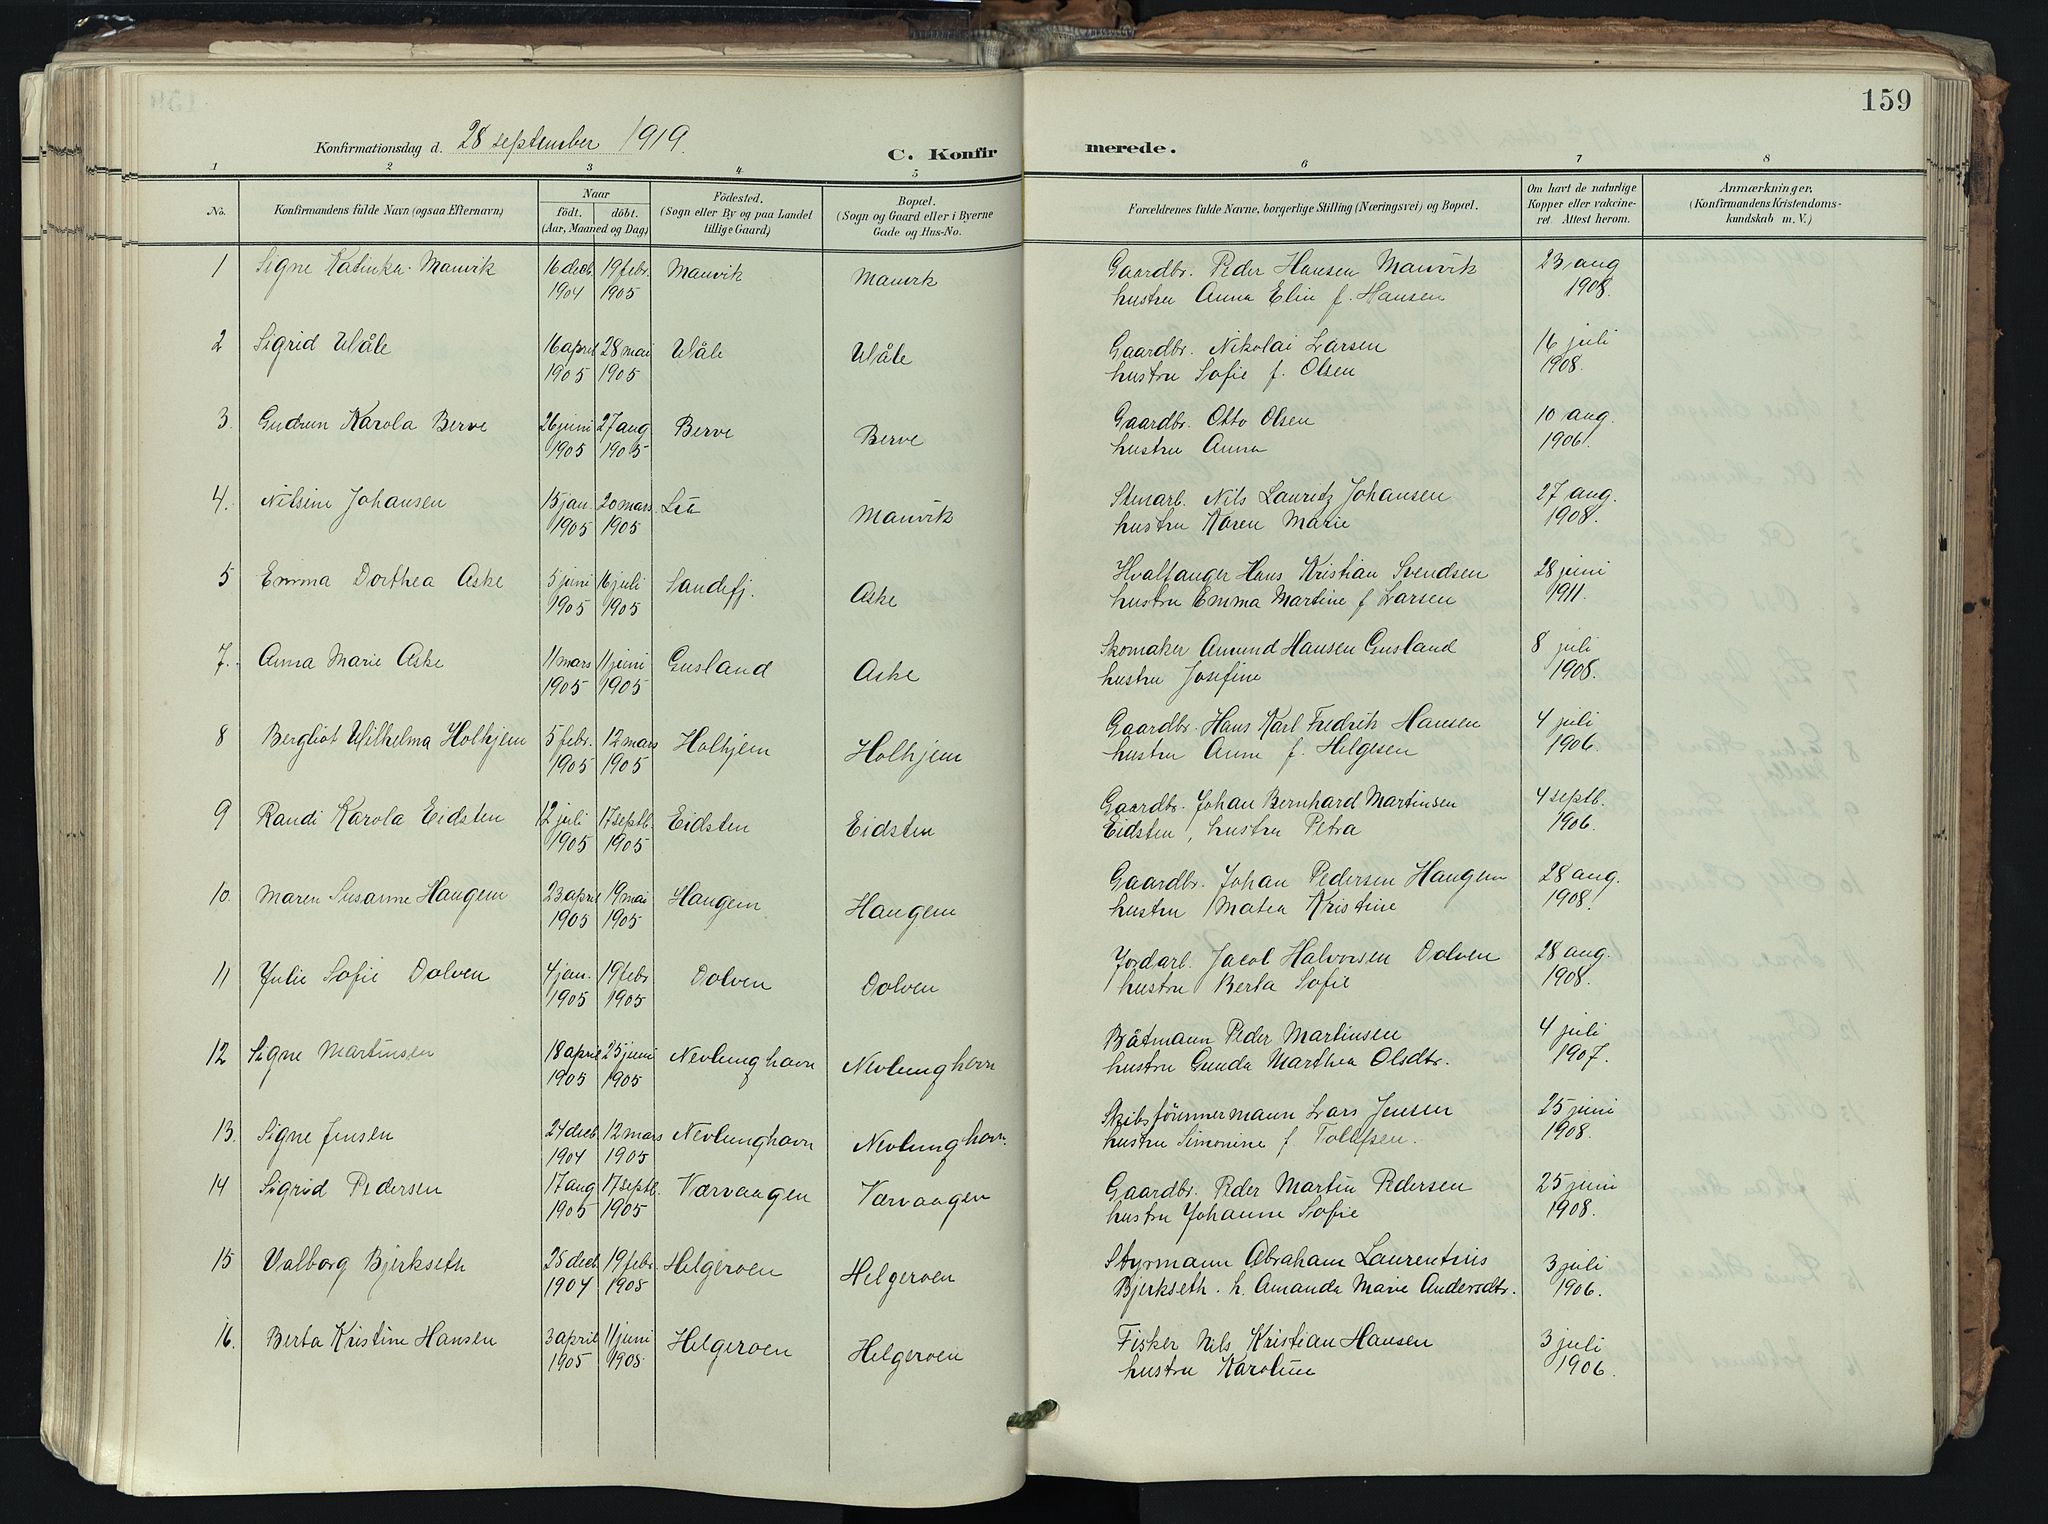 159
Konfirmationsdag d. 28 september 1919.
C. Konfir
merede.
1 2 3 4 5 6 7 8
No. Konfirmandens fulde Navn (ogsaa Efternavn) Naar født. døbt. (Aar, Maaned og Dag) Födested. (Sogn eller By og paa Landet tillige Gaard) Bopæl. (Sogn og Gaard eller i Byerne Gade og Hus-No. Forældrenes fulde Navne, borgerlige Stilling (Næringsvei) og Bopæl. Om havt de naturlige Kopper eller vakcineret. Attest herom. Anmærkninger. (Konfirmandens Kristendomskundskab m. V.)
1 Signe Katinka Manvik 16 decb. 19 febr. Manvik Manvik Gaardbr. Peder Hansen Manvik 23 aug
1904 1905 hustru Anna Elin f. Hansen 1908.
2 Sigrid Ulåle 16 april 28 mai Ulåle Ulåle Gaardbr. Nikolai Larsen 16 juli
1905 1905 hustru Sofie f. Olsen 1908.
3. Gudrun Karola Berve 26 juni 27 aug Berve Berve Gaardbr. Otto Olsen 10 aug.
1905 1905 hustru Anna 1906.
4. Nilsine Johansen 15 jan. 20 mars. Manvik Stenarb. Nils Lauritz Johansen 27 aug.
1905 1905 hustru Karen Marie 1908.
5 Emma Dorthea Aske 5 juni 16 juli Sandefj. Aske Hvalfanger Hans Kristian Svendsen 28 juni
1905 1905 hustru Emma Martine f Larsen 1911.
7. Anna Marie Aske 11 mars 11 juni Gusland Aske Skomaker Amund Hansen Gusland 8 juli
1905 1905 hustru Josefine 1908.
8 Bergliot Wilhelma Holhjem 5 febr. 12 mars Holhjem Holhjem Gaardbr. Hans Karl Fredrik Hansen 4 juli
1905 1905 hustru Anne f. Helgesen 1906.
9 Randi Karola Eidsten 12 juli 17 septb. Eidsten Eidsten Gaardbr. Johan Bernhard Martinsen 4 septb.
1905 1905 Eidsten, hustru Petra 1906.
10. Maren Susanne Haugem 23 april 19 mai Haugem Haugem Gaardbr. Johan Pedersen Haugem 28 aug.
1905 1905 hustru Matea Kristine 1908.
11 Julie Sofie Dolven 4 jan. 19 febr Dolven Dolven Jordarb. Jacob Halvorsen Dolven 28 aug.
1905 1905 hustru Berta Sofie 1908.
12 Signe Martinsen 18 april 25 juni Nevlunghavn Nevlunghavn Båtmann Peder Martinsen 4 juli
1905 1905 hustru Gunda Marthea Olsdtr. 1907.
13. Signe Jensen 24 decb. 12 mars Nevlunghavn Nevlunghavn. Skibstömmermann Lars Jensen 25 juni
1904 1905 hustru Simonine f. Tollefsen. 1908.
14 Sigrid Pedersen 17 aug 17 septb. Værvaagen Værvaagen Gaardbr. Peder Martin Pedersen 25 juni
1905 1905 hustru Johanne Sofie 1908.
15 Valborg Bjerkseth 25 decb. 19 febr. Helgeroen Helgeroen Styrmann Abraham Laurentius 3 juli
1904 1905 Bjerkseth. h. Amanda Marie Andersdtr. 1906.
16. Berta Kristine Hansen 3 april 11 juni Helgeroen Helgeroen Fisker Nils Kristian Hansen 3 juli
1905 1905. hustru Karoline 1906.